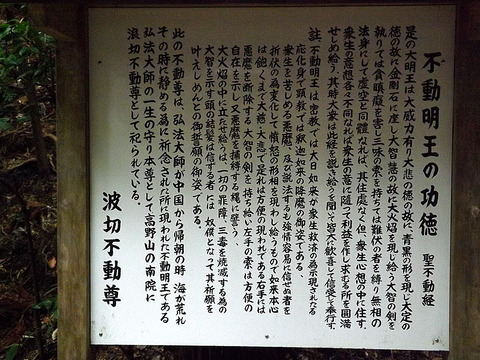 不動明王の功徳 聖不動経
是の大明王は大威力有り大悲の徳の故に、青黒の形を現し大定の
徳の故に金剛石に座し大智慧の故に大火焰を現し給う大智の剣を
執りては貪瞋癡を害し三昧の索を持ちては難伏の者を縛り無相の
法身にして虚空と同體なれば、其住處なく但、衆生心想の中に住す、
衆生の意想各々不同なれば衆生の意に随って利益を作し求むる所を圓満
せしめ給う、其時大衆は此経を説き給うを聞いて皆大に歓喜して信受し奉行す、
註 不動明王は密教では大日如来が衆生救済の為示現されたる
応化身で顕教では釈迦如来の降魔の御姿である、
衆生を苦しめる悪魔、及び説法するも強情容易に信せぬ者を
折伏の為変化して憤怒の形相を現わし給うもので如来本心
は飽くまで大慈・大悲で是れは方便の現われである右手には
悪魔を断除する大智の剣を持ち給い左手の索は方便の
自在を示し又悪魔を捕縛する縄に譬う、
大火焰の中に立たせ給うは一切の罪障、三毒を焼滅する為の
大智を示す頭の結髪は信ずる者には、奴僕となって其祈願を
叶えしめんとの御誓願の御姿である。
此の不動尊は、弘法大師が中国から帰朝の時、海が荒れ
その時に静める為に祈念された所現われた不動明王である
弘法大師の一生の守り本尊として高野山の南院に
浪切不動尊として祀られている。
波切不動尊